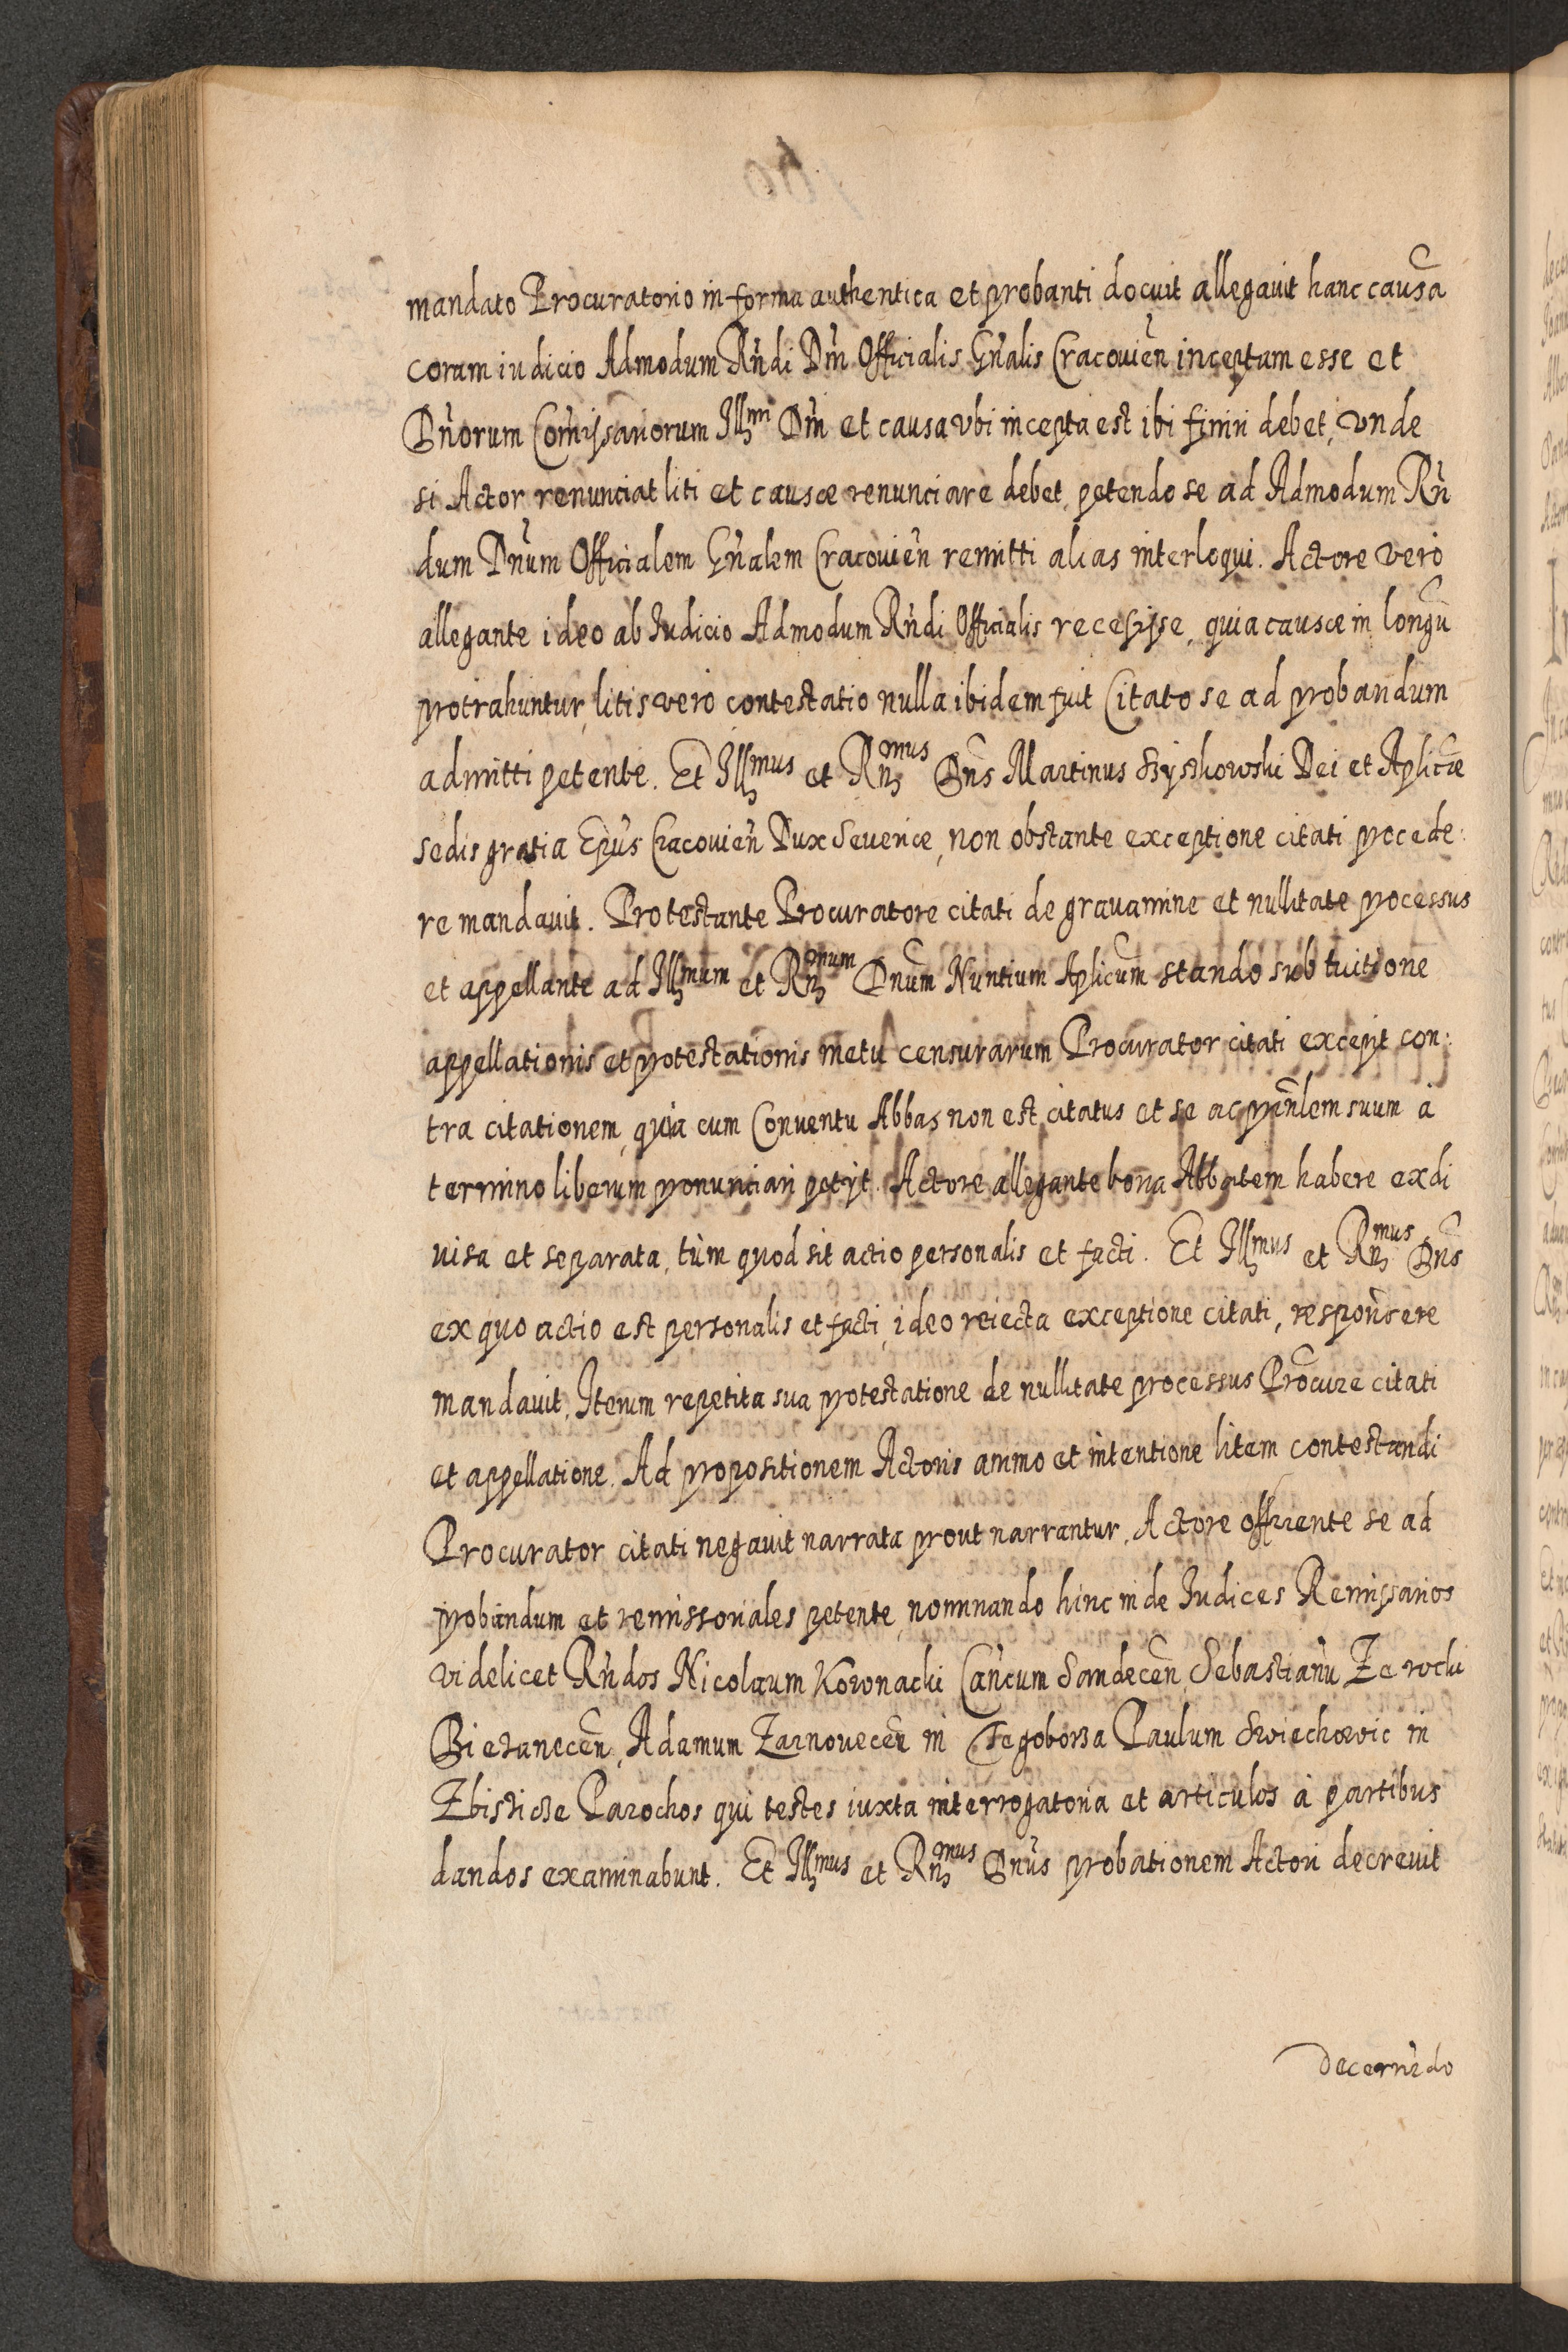 mandato Procuratorio in forma authentica et probanti docuit allegauit hanc causã
coram iudicio Admodum Rñdi Dñi Officialis Gñalis Cracouieñ inceptam esse et
Dñorum Comißariorum Illmi Dñi et causa vbi incepta est ibi finiri debet, vnde
si Actor renunciat liti et causæ renunciare debet, petendo se ad Admodum Rñ
dum Dñum Officialem Gñalem Cracouieñ remitti alias interloqui. Actore vero
allegante ideo ab Iudicio Admodum Rñdi Officialis receßiße, quia causæ in longũ
protrahuntur, litis vero contestatio nulla ibidem fuit Citato se ad probandum
admitti petente. Et Illmus et Rñmus Dñs Martinus Szyszkowski Dei et Aplicæ
sedis gratia Epũs Cracouieñ Dux Seueriæ, non obstante exceptione citati procede:
re mandauit. Protestante Procuratore citati de grauamine et nullitate processus
et appellante ad Illmum et Rñmum Dñum Nuntium Aplicum stando sub tuitione
appellationis et protestationis metu censurarum Procurator citati excepit con:
tra citationem, quia cum Conuentu Abbas non est citatus et se ac prinlem suum à
termino liberum pronunciari petijt. Actore allegante bona Abbatem habere ex di
uisa et separata, tùm quod sit actio personalis et facti. Et Illmus et Rñmus Dñs
ex quo actio est personalis et facti, ideo reiecta exceptione citati, respondere
mandauit. Iterum repetita sua protestatione de nullitate processus Procure citati
et appellatione. Ad propositionem Actoris animo et intentione litem contestandi
Procurator citati negauit narrata prout narrantur. Actore offerente se ad
probandum et remissoriales petente, nominando hinc inde Iudices Remißarios
videlicet Rñdos Nicolaum Koronacki Cañcum Sandeceñ, Sebastianũ
Adamum Zarnoueceñ in Paulum Swiechowic in
Parochos qui testes iuxta interrogatoria et articulos à partibus
dandos examinabunt. Et Illmus et Rñmus Dñus probationem Actori decreuit
decernẽdo